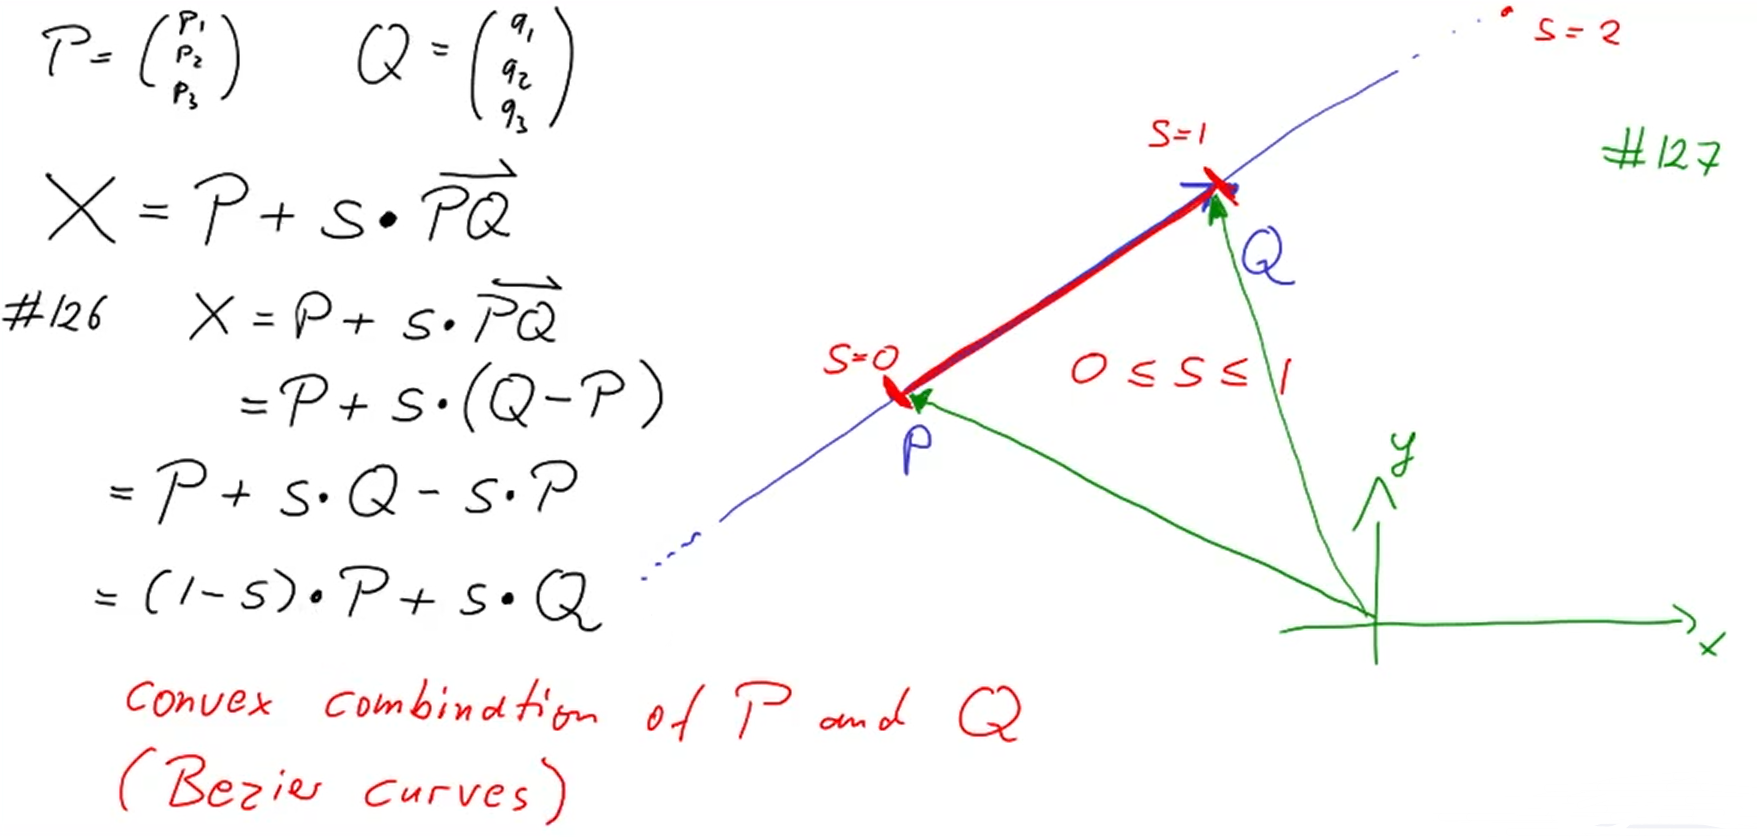 P = (p1 p2 p3) Q = (q1 q2 q3)
X = P + s • PQ
#126 X = P + s • PQ
= P + s • (Q - P)
= P + s • Q - s • P
= (1 - s) • P + s • Q
convex combination of P and Q
(Bezier curves)
s = 2
#127
s=1
Q
s=0
0 ≤ s ≤ 1
P
y
x